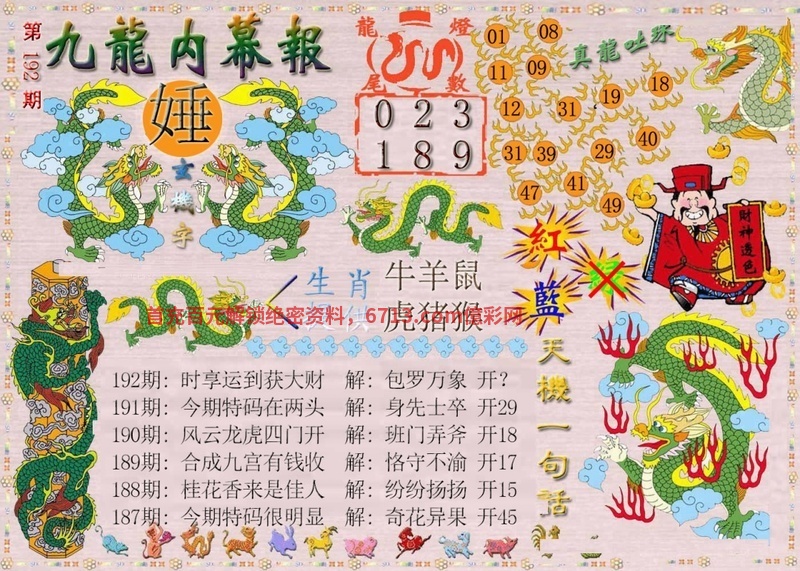 第192期
九龍內幕報
娷
玄機字
龍燈
尾數
023
189
真龍吐珠
01 08
11 09
12 31 19 18
31 39 29 40
47 41 49
紅
藍
財神送色
生肖
牛羊鼠
虎猪猴
首充百元解锁绝密资料，6713.com模彩网
天機一句話
192期: 时享运到获大财 解: 包罗万象 开?
191期: 今期特码在两头 解: 身先士卒 开29
190期: 风云龙虎四门开 解: 班门弄斧 开18
189期: 合成九宫有钱收 解: 恪守不渝 开17
188期: 桂花香来是佳人 解: 纷纷扬扬 开15
187期: 今期特码很明显 解: 奇花异果 开45